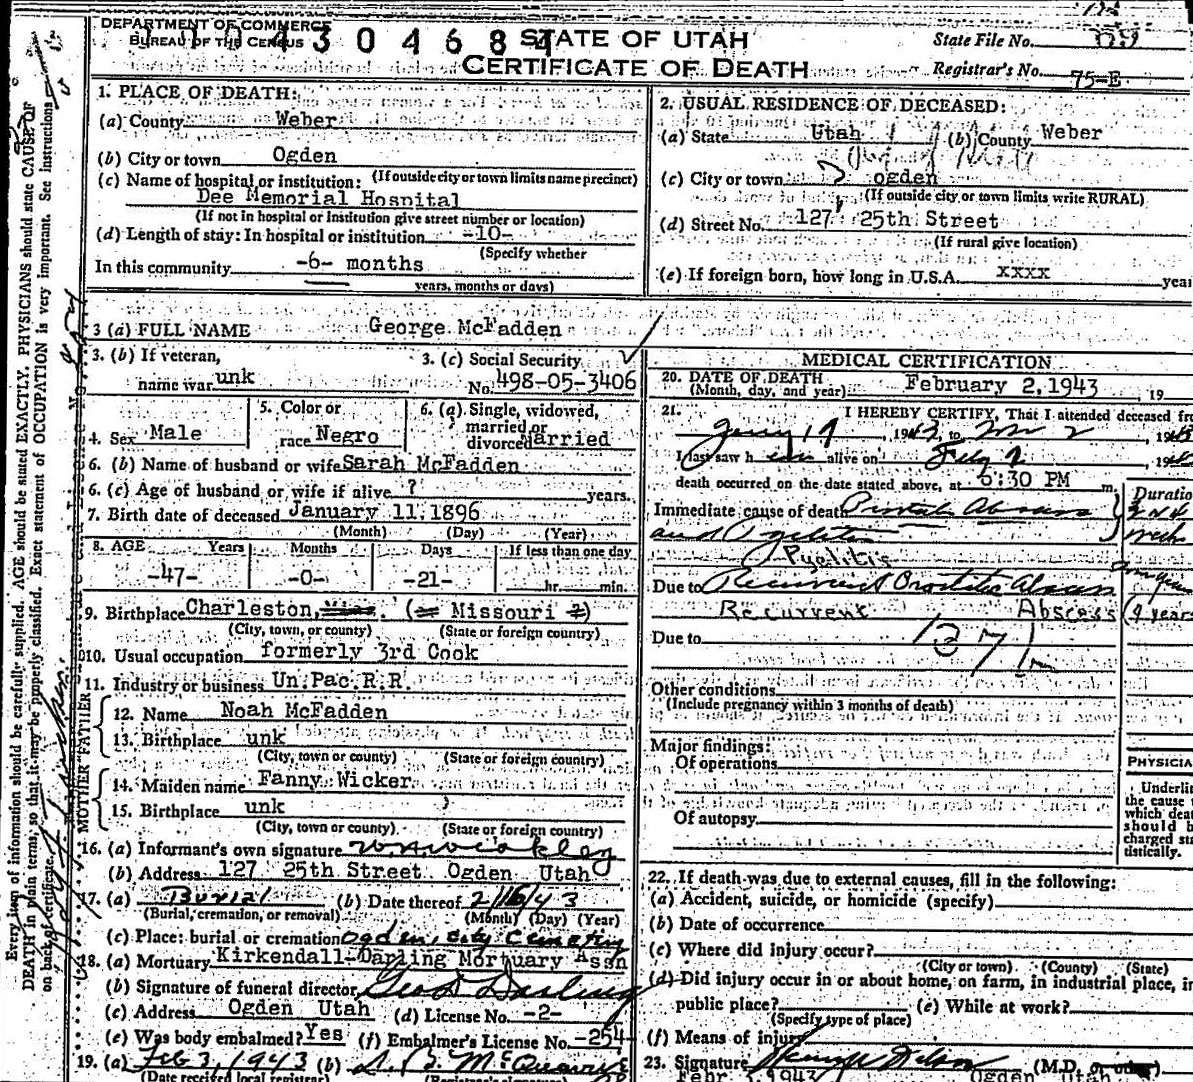 DEPARTMENT OF COMMERCE
BUREAU OF THE CENSUS
STATE OF UTAH
CERTIFICATE OF DEATH
State File No.
Registrar's No. 75-E
1. PLACE OF DEATH:
(a) County Weber
(b) City or town Ogden
(If outside city or town limits name precinct)
(c) Name of hospital or institution:
Dee Memorial Hospital
(If not in hospital or institution give street number or location)
(d) Length of stay: In hospital or institution -10-
(Specify whether
In this community -6- months
years, months or days)
2. USUAL RESIDENCE OF DECEASED:
(a) State Utah (b) County Weber
(c) City or town ogden
(If outside city or town limits write RURAL)
(d) Street No. 127 25th Street
(If rural give location)
(e) If foreign born, how long in U.S.A. xxxx
3 (a) FULL NAME George McFadden
3. (b) If veteran,
name war unk
3. (c) Social Security
No. 498-05-3406
4. Sex Male
5. Color or
race Negro
6. (a) Single, widowed,
married or
divorced Married
6. (b) Name of husband or wife Sarah McFadden
6. (c) Age of husband or wife if alive ? years.
7. Birth date of deceased January 11, 1896
(Month) (Day) (Year)
8. AGE Years Months Days If less than one day
-47- -0- -21- hr. min.
9. Birthplace Charleston, ( Missouri )
(City, town, or county) (State or foreign country)
10. Usual occupation formerly 3rd Cook
11. Industry or business Un.Pac.R.R.
FATHER
12. Name Noah McFadden
13. Birthplace unk
(City, town or county) (State or foreign country)
MOTHER
14. Maiden name Fanny Wicker
15. Birthplace unk
(City, town or county) (State or foreign country)
16. (a) Informant's own signature
(b) Address 127 25th Street Ogden Utah
17. (a) Burial (b) Date thereof 2/16/43
(Burial, cremation, or removal) (Month) (Day) (Year)
(c) Place: burial or cremation Ogden, City Cemetery
18. (a) Mortuary Kirkendall-Darling Mortuary Assn
(b) Signature of funeral director Geo D Darling
(c) Address Ogden Utah (d) License No. -2-
(e) Was body embalmed? Yes (f) Embalmer's License No. -254-
19. (a) Feb 3, 1943 (b)
(Date received local registrar)
MEDICAL CERTIFICATION
20. DATE OF DEATH February 2, 1943
(Month, day, and year) 19
21. I HEREBY CERTIFY, That I attended deceased
I last saw h alive on
death occurred on the date stated above, at 6:30 PM m.
Immediate cause of death
Duration
and
Pyelitis
Due to Recurrent Abscess
Recurrent Abscess
Due to
Other conditions
(Include pregnancy within 3 months of death)
Major findings:
Of operations
Of autopsy
22. If death was due to external causes, fill in the following:
(a) Accident, suicide, or homicide (specify)
(b) Date of occurrence
(c) Where did injury occur?
(City or town) (County) (State)
(d) Did injury occur in or about home, on farm, in industrial place, in
public place? (e) While at work?
(Specify type of place)
(f) Means of injury
23. Signature (M.D. or other)
Ogden Utah
Every item of information should be carefully supplied. AGE should be stated EXACTLY. PHYSICIANS should state CAUSE OF
DEATH in plain terms, so that it may be properly classified. Exact statement of OCCUPATION is very important. See instructions
on back of certificate.